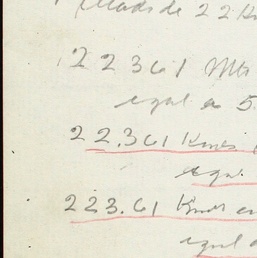 de 22
22361 Mts
egal a 5
22.361 Kmts
egal
223.61 Kmts en
egal a